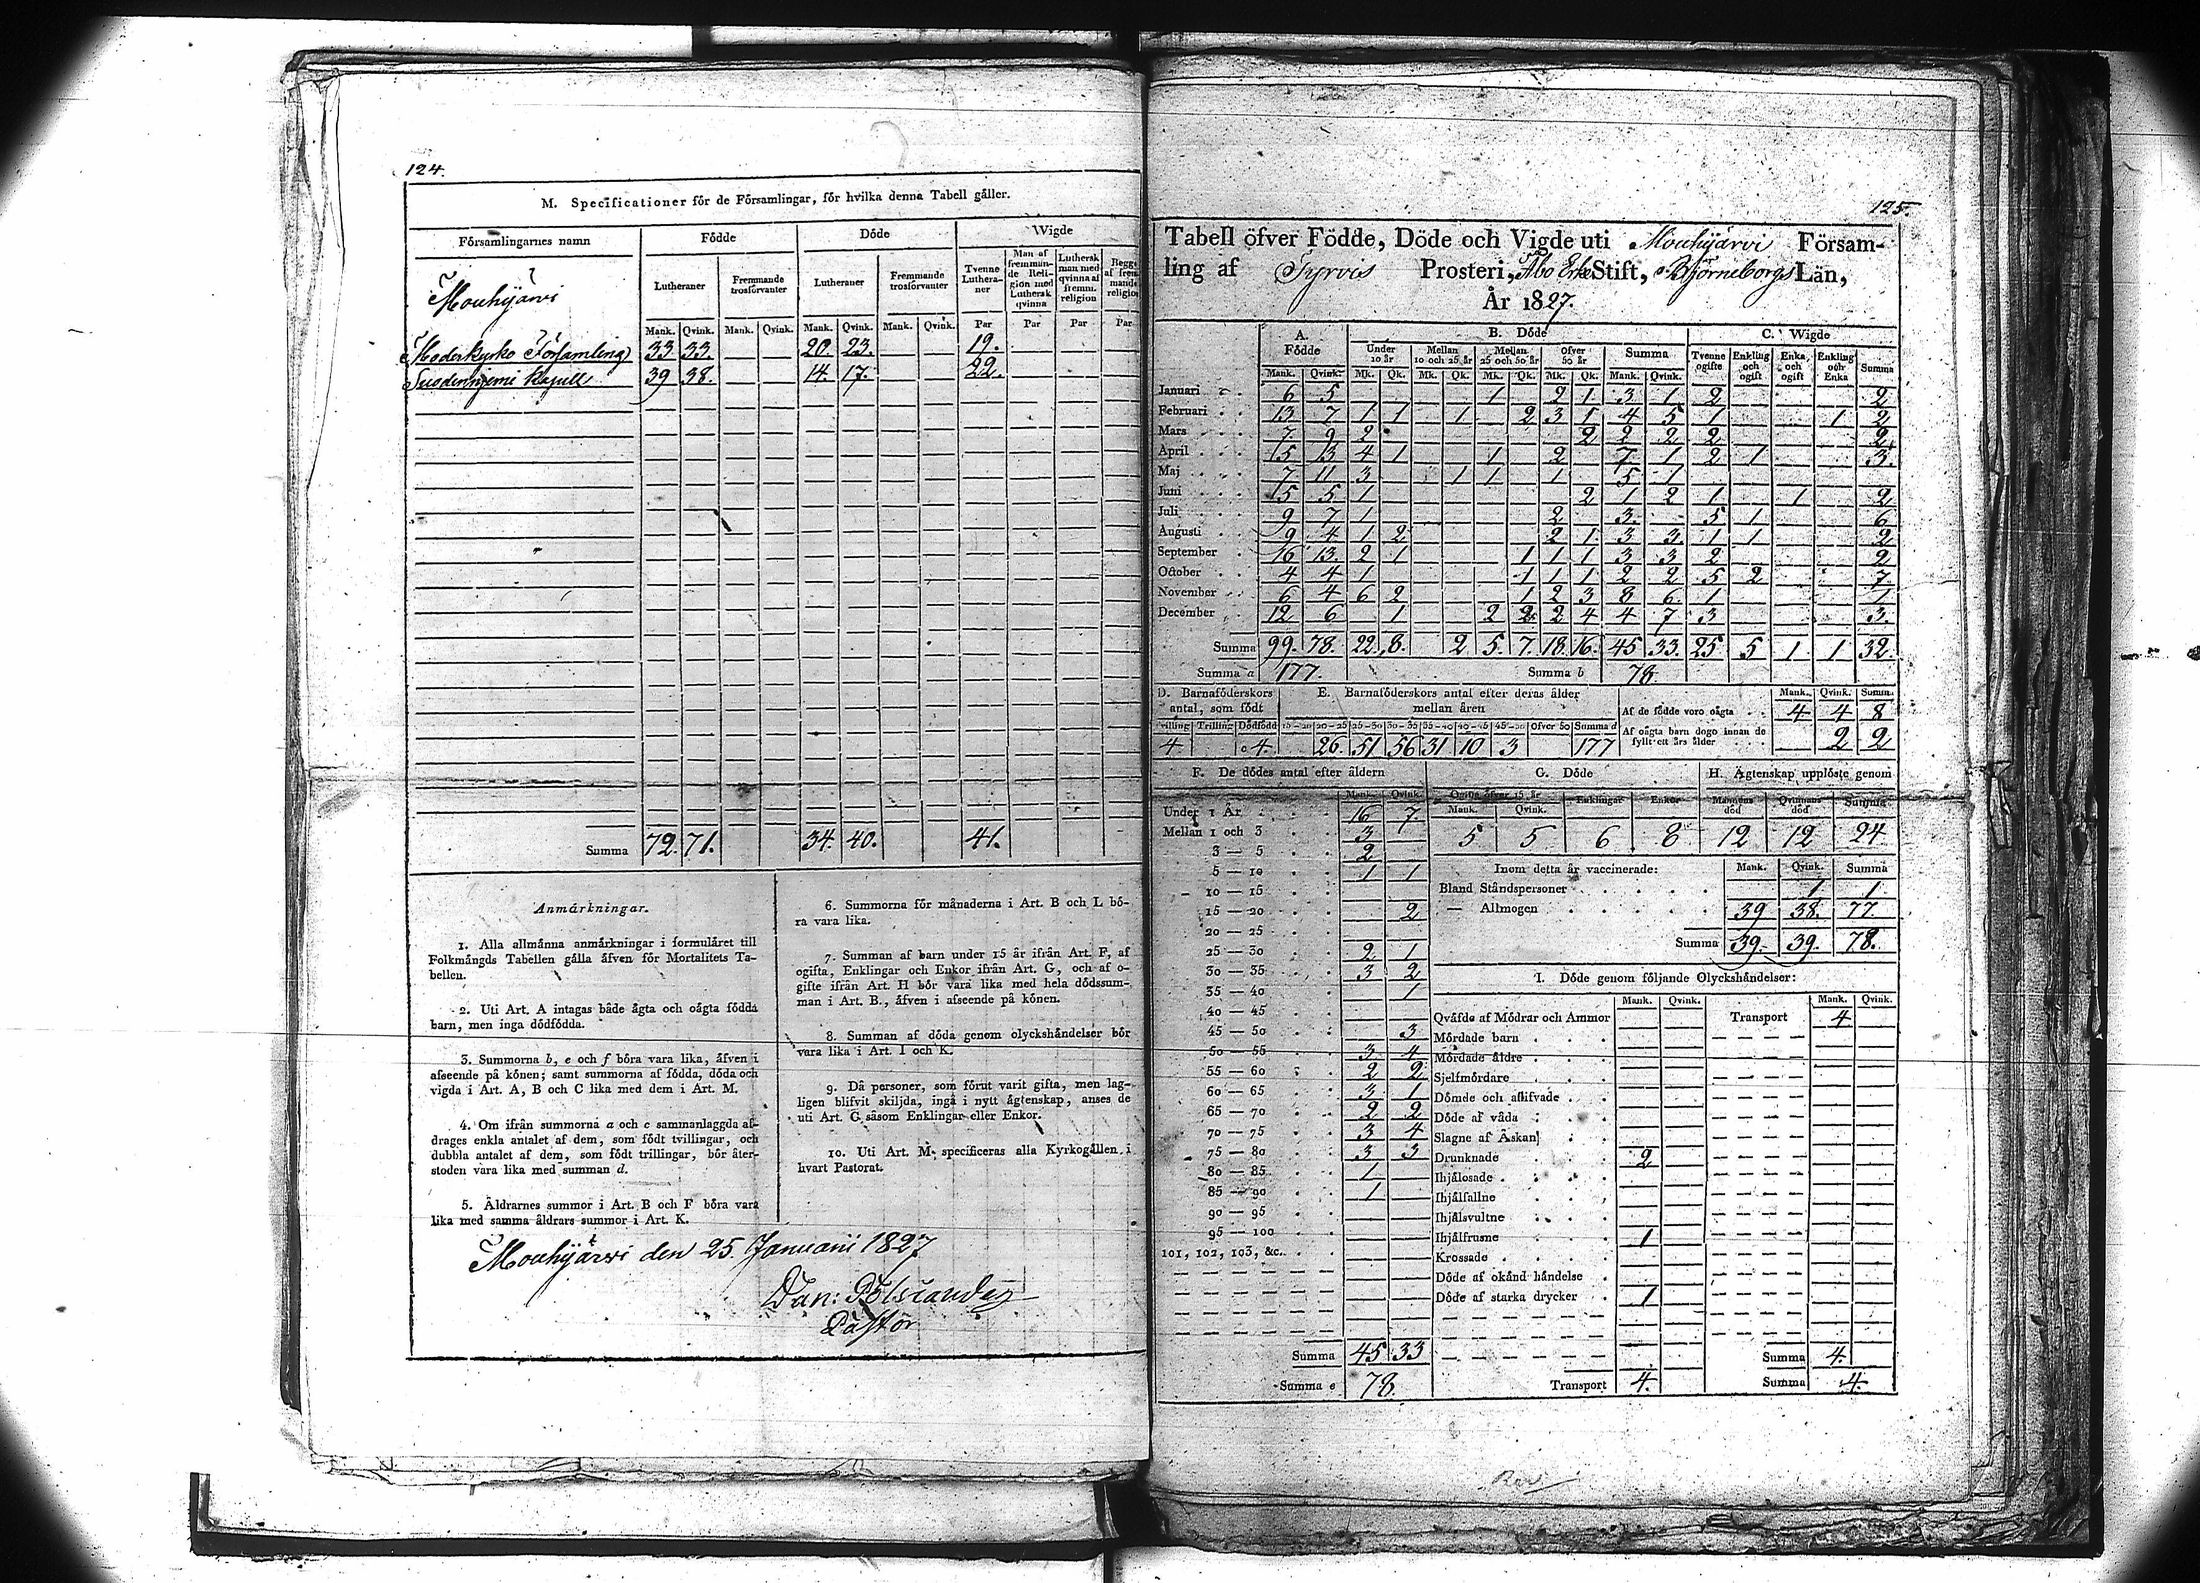 124.
M. Specificationer för de Församlingar, för hvilka denna Tabell gäller.
Församlingarnes namn | Födde | Döde | Wigde
Lutheraner | Fremmande trosförvanter | Lutheraner | Fremmande trosförvanter | Tvenne Lutheraner | Man af fremmunde Religion med Luthersk qvinna | Luthersk man med qvinna af fremm. religion | Begge af fremmande religion
Mouhijärvi
Mank. Qvink. Mank. Qvink. Mank. Qvink. Mank. Qvink. Par Par Par Par
Moderkyrko Församling 33 33. 20. 23. 19.
Suodenniemi Kapell 39 38. 14. 17. 22.
Summa 72. 71. 34. 40. 41.
Anmärkningar.
1. Alla allmänna anmärkningar i formuläret till
Folkmängds Tabellen gälla äfven för Mortalitets Ta-
bellen.
2. Uti Art. A intagas både ägta och oägta födda
barn, men inga dödfödda.
3. Summorna b, e och f böra vara lika, äfven i
afseende på könen; samt summorna af födda, döda och
vigda i Art. A, B och C lika med dem i Art. M.
4. Om ifrån summorna a och c sammanlaggda af-
drages enkla antalet af dem, som födt tvillingar, och
dubbla antalet af dem, som födt trillingar, bör åter-
stoden vara lika med summan d.
5. Åldrarnes summor i Art. B och F böra vara
lika med samma åldrars summor i Art. K.
6. Summorna för månaderna i Art. B och L bö-
ra vara lika.
7. Summan af barn under 15 år ifrån Art. F, af
ogifta, Enklingar och Enkor ifrån Art. G, och af o-
gifte ifrån Art. H bör vara lika med hela dödssum-
man i Art. B., äfven i afseende på könen.
8. Summan af döda genom olyckshändelser bör
vara lika i Art. I och K.
9. Då personer, som förut varit gifta, men lag-
ligen blifvit skiljda, ingå i nytt ägtenskap, anses de
uti Art. G såsom Enklingar eller Enkor.
10. Uti Art. M. specificeras alla Kyrkogällen i
hvart Pastorat.
Mouhijärvi den 25. Januarii 1827
Dan: Polviander
Pastor
125.
Tabell öfver Födde, Döde och Vigde uti Mouhijärvi Försam-
ling af Tyrvis Prosteri, Åbo Erke Stift, Björneborgs Län,
År 1827.
A. Födde | B. Döde | C. Wigde
Under 10 år | Mellan 10 och 25 år | Mellan 25 och 50 år | Öfver 50 år | Summa | Tvenne ogifte | Enkling och ogift | Enka och ogift | Enkling och Enka | Summa
Mank. Qvink. Mk. Qk. Mk. Qk. Mk. Qk. Mk. Qk. Mank. Qvink.
Januari 6 5 1 2 1 3 1 2 2
Februari 13 7 1 1 1 2 3 1 4 5 1 1 2
Mars 7 9 2 2 2 2 2 2
April 15 13 4 1 1 2 7 1 2 1 3.
Maj 7 11 3 1 1 1 5 1
Juni 15 5 1 2 1 2 1 1 2
Juli 9 7 1 2 3. 5 1 6
Augusti 9 4 1 2 2 1 3 3. 1 1 2
September 16 13. 2 1 1 1 1 3 3 2 2
October 4 4 1 1 1 1 2 2 5 2 7
November 6 4 6 2 1 2 3 8 6 1 1
December 12 6 1 2 2 2 4 4 7 3 3.
Summa 99. 78. 22. 8. 2 5. 7. 18. 16. 45 33. 25 5 1 1 32.
Summa a 177. Summa b 78.
D. Barnaföderskors antal, som födt
Tvilling Trilling Dödfödd
4 4.
E. Barnaföderskors antal efter deras ålder mellan åren
15-20 20-25 25-30 30-35 35-40 40-45 45-50 Öfver 50 Summa d
26. 51 56 31 10 3 177
Mank. Qvink. Summa.
Af de födde voro oägta 4 4 8
Af oägta barn dogo innan de fyllt ett års ålder 2 2
F. De dödes antal efter åldern
Mank. Qvink.
Under 1 År 16 7.
Mellan 1 och 3 3
3 — 5 2
5 — 10 1 1
10 — 15
15 — 20 2
20 — 25
25 — 30 2 1
30 — 35 3 2
35 — 40 1
40 — 45
45 — 50 3
50 — 55 3 4
55 — 60 2 2
60 — 65 3 1
65 — 70 2 2
70 — 75 3 4
75 — 80 3 3
80 — 85 1
85 — 90 1
90 — 95
95 — 100
101, 102, 103, &c.
Summa 45 33
Summa e 78.
G. Döde
Ogifta öfver 15 år Enklingar Enkor
Mank. Qvink.
5 5 6 8
H. Ägtenskap upplöste genom
Mannens död Qvinnans död Summa
12 12 24
Inom detta år vaccinerade: Mank. Qvink. Summa
Bland Ståndspersoner 1 1
— Allmogen 39 38. 77.
Summa 39. 39. 78.
I. Döde genom följande Olyckshändelser:
Mank. Qvink. Mank. Qvink.
Qväfde af Mödrar och Ammor Transport 4
Mördade barn
Mördade äldre
Sjelfmördare
Dömde och aflifvade
Döde af våda
Slagne af Åskan
Drunknade 2
Ihjälosade
Ihjälfallne
Ihjälsvultne
Ihjälfrusne 1
Krossade
Döde af okänd händelse
Döde af starka drycker 1
Summa 4.
Transport 4. Summa 4.